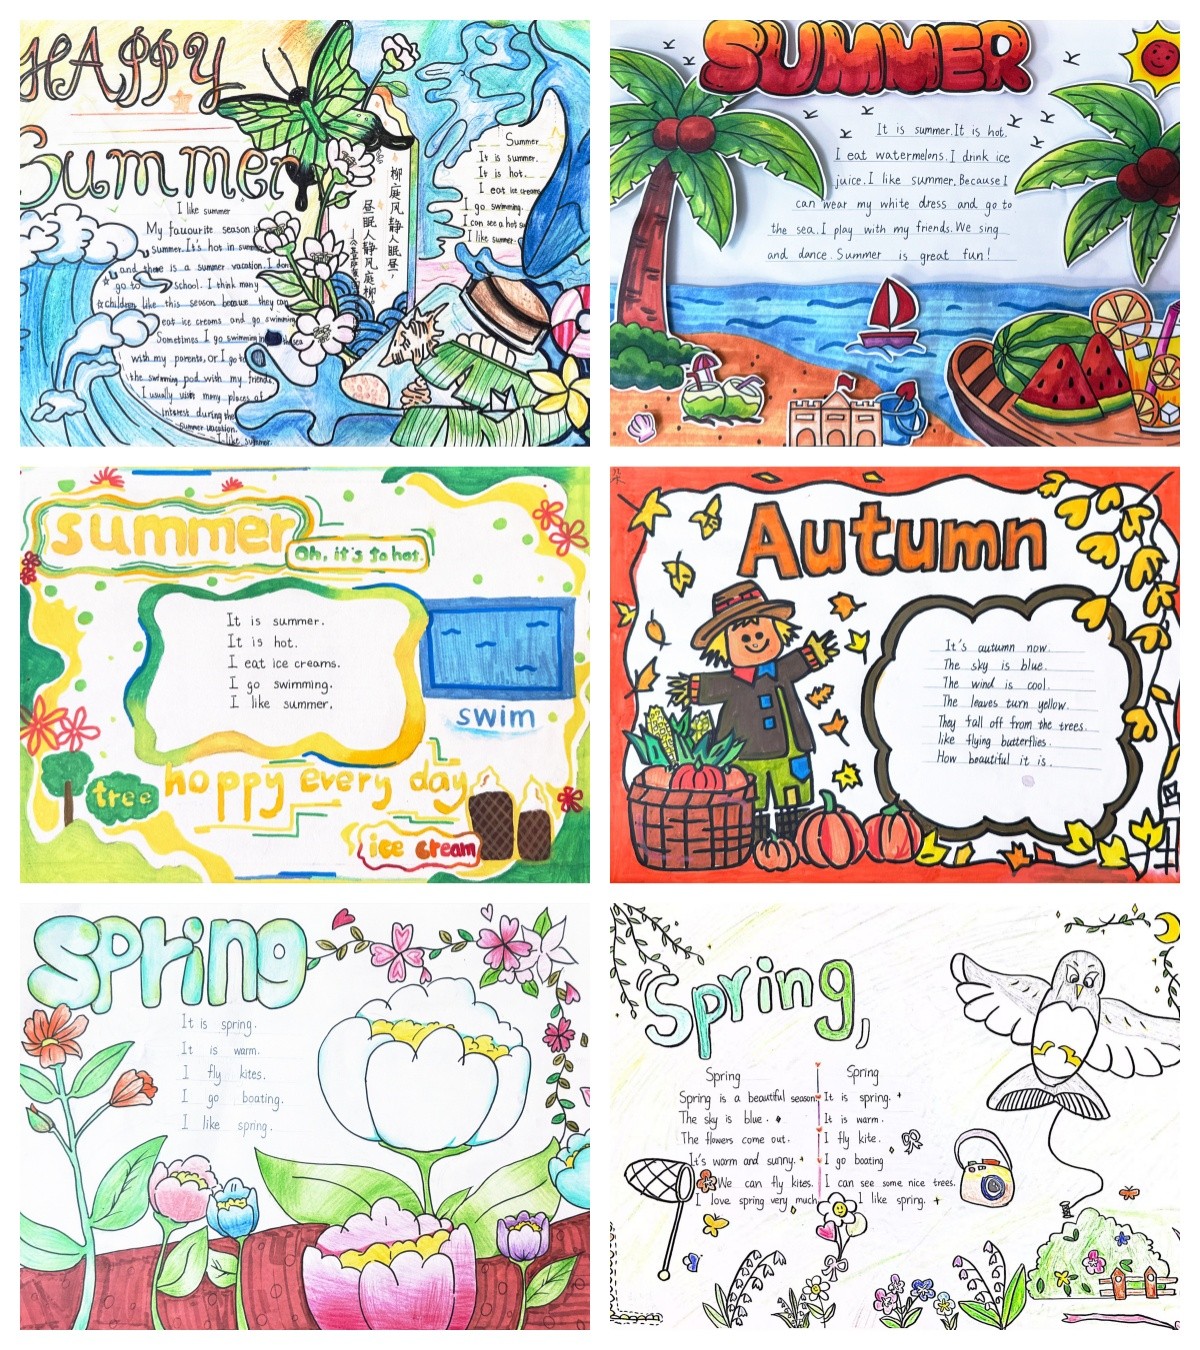 HAPPY
Summer
I like summer
My fauourite season is
summer. It's hot in summer
and there is a summer vacation. I don
go to school. I think many
children like this season because they can
eat ice creams and go swimming
Sometimes I go swimming in the sea
with my parents, or I go to
the swimming pod with my friends.
I usually visit many places of
interest during the
summer vacation.
I like summer.
柳庭风静人眠昼,
昼眠人静风庭柳。
Summer
It is summer.
It is hot.
I eat ice cream
I go swimming.
I can see a hot
I like summer.
SUMMER
It is summer. It is hot.
I eat watermelons. I drink ice
juice. I like summer. Because I
can wear my white dress and go to
the sea. I play with my friends. We sing
and dance. Summer is great fun!
summer
Oh, it's to hot.
It is summer.
It is hot.
I eat ice creams.
I go swimming.
I like summer.
swim
happy every day
tree
ice cream
Autumn
It's autumn now.
The sky is blue.
The wind is cool.
The leaves turn yellow.
They fall off from the trees.
like flying butterflies.
How beautiful it is.
Spring
It is spring.
It is warm.
I fly kites.
I go boating.
I like spring.
Spring
Spring
Spring is a beautiful season.
The sky is blue.
The flowers come out.
It's warm and sunny.
We can fly kites.
I love spring very much
Spring
It is spring.
It is warm.
I fly kite.
I go boating
I can see some nice trees.
I like spring.